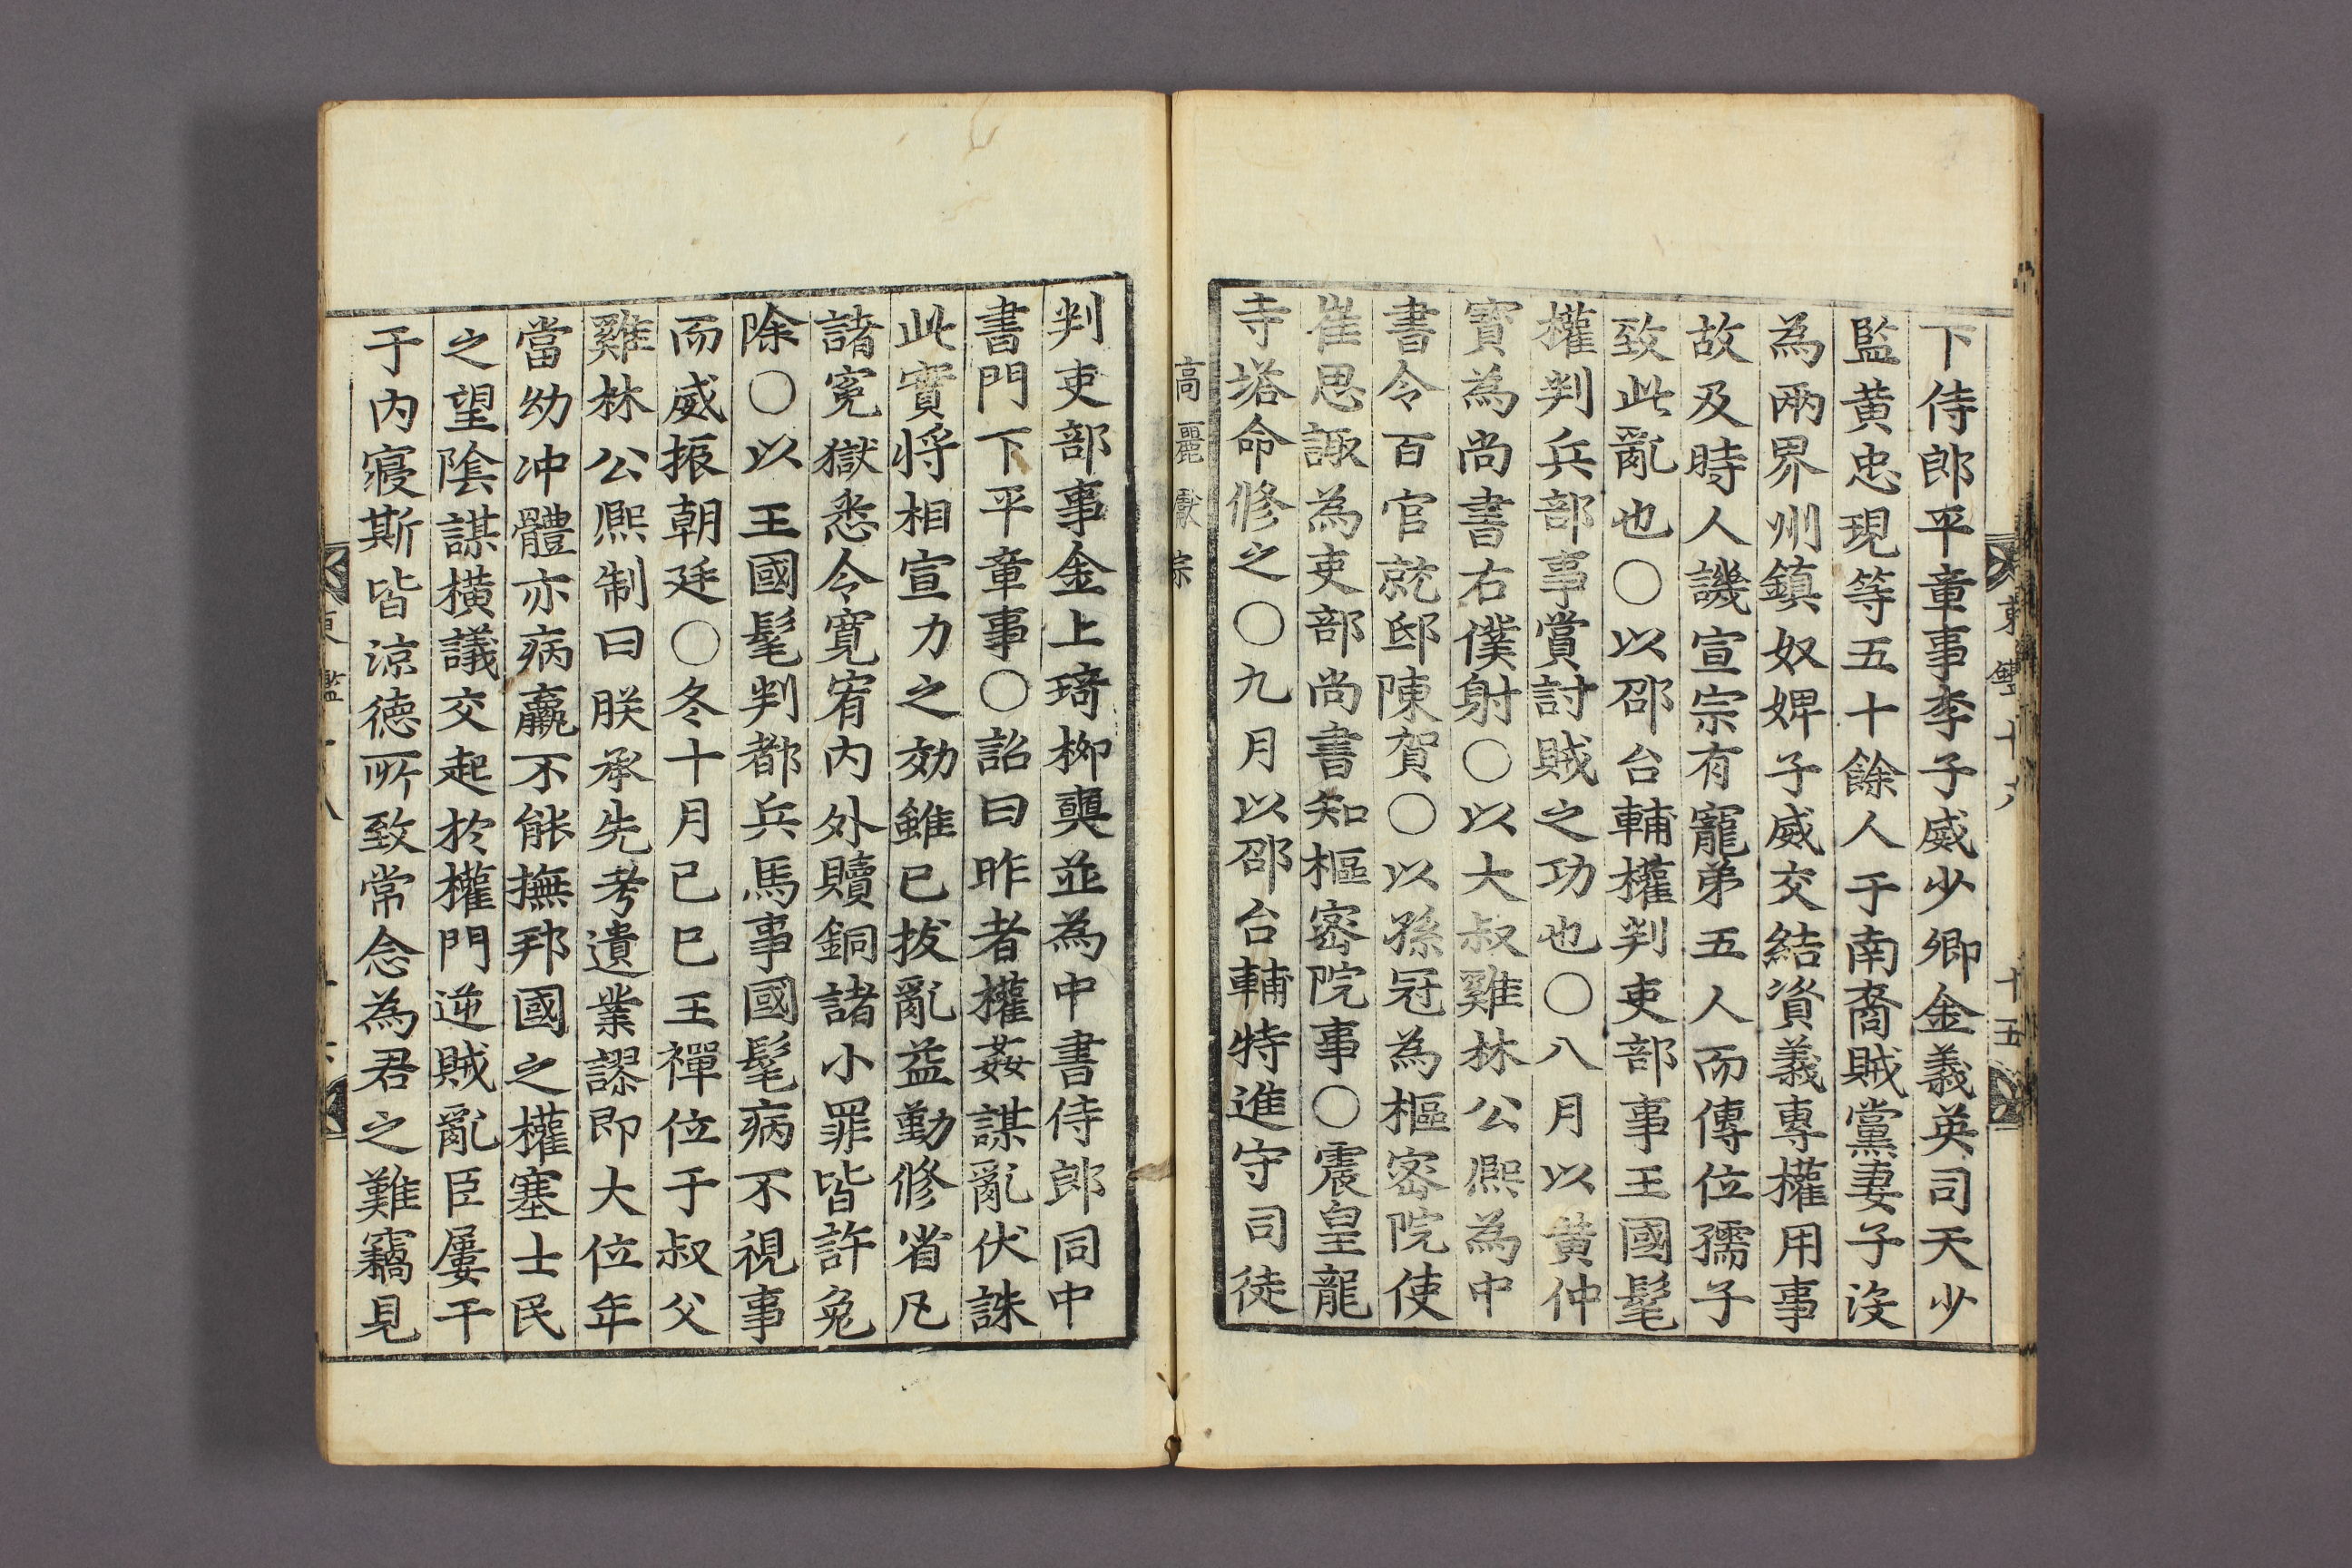 下侍郎平章事李子威少卿金義英司天少
監黄忠現等五十餘人于南裔賊黨妻子沒
為兩界州鎮奴婢子威交結資義專權用事
故及時人譏宣宗有寵弟五人而傳位孺子
致此亂也○以邵台輔權判吏部事王國髦
權判兵部事賞討賊之功也○八月以黄仲
寶為尚書右僕射○以大叔雞林公熈為中
書令百官就邸陳賀○以孫冠為樞密院使
崔思諏為吏部尚書知樞密院事○震皇龍
寺塔命修之○九月以邵台輔特進守司徒
高麗獻宗
判吏部事金上琦柳奭並為中書侍郎同中
書門下平章事○詔曰昨者權姦謀亂伏誅
此實将相宣力之効雖已拔亂益勤修省凡
諸寃獄悉令寛宥内外贖銅諸小罪皆許免
除○以王國髦判都兵馬事國髦病不視事
而威振朝廷○冬十月己巳王禪位于叔父
雞林公熈制曰朕承先考遺業謬即大位年
當幼冲體亦病羸不能撫邦國之權塞士民
之望陰謀橫議交起於權門逆賊亂臣屢干
于内寢斯皆涼德所致常念為君之難竊見